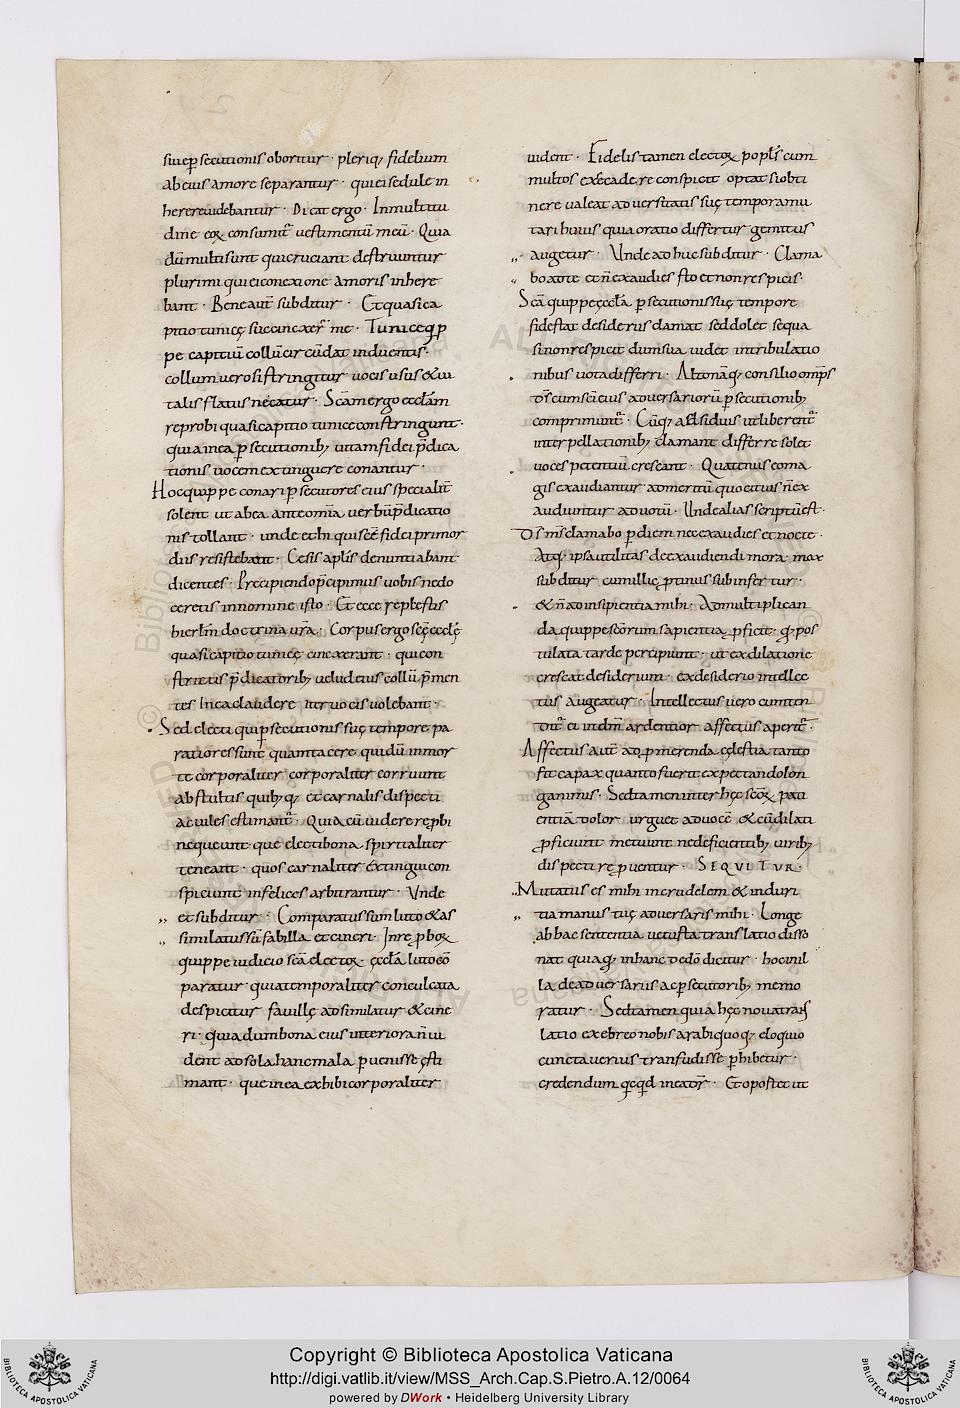 suę ꝑsecutionis oboritur · pleriq; fidelium
ab eius amore separantur · qui ei sedule in
herere videbantur · Dicat ergo · In multitu
dine eoꝝ consumit̄ vestimentū meū · Quia
dū multi sunt qui cruciant destruuntur
plurimi qui ei conexione amoris inhere
bant · Bene aut̄ subditur · Et quasi ca
pitio tunicę succinxer̄ me · Tunicę q̄ppe
pe capitiū collū circūdat induentis ·
collum vero si stringitur vocis usus & vi
talis flatus necatur · Scām ergo ecclām
reprobi quasi capitio tunicę constringunt ·
quia in ea ꝑsecutionib; vitam fidei p̄dica
tionis vocem extinguere conantur ·
Hoc quippe conari ꝑsecutores eius specialit̄
solent ut ab ea ante om̄ia verbū p̄dicatio
nis tollant · unde et hi qui scē fidei primor
diis resistebant · Cesis apl̄is denuntiabant
dicentes · Precipiendo p̄cipimus vobis ne do
ceretis in nomine isto · Et ecce replestis
hierl̄m doctrina vr̄a · Corpus ergo scę ecclę
quasi capitio tunicę cinxerant · qui con
strictis p̄dicatorib; velud eius collū p̄men
tes in ea claudere iter vocis volebant ·
Sed electi qui ꝑsecutionis suę tempore pa
ratiores sunt quam tacere quidū in mor
te corporaliter corporaliter corruunt
ab stultis quibq; et carnalis dispecti
ac viles estimant̄ · Quia cū videre rep̄bi
nequeunt que electi bona spiritaliter
teneant · quos carnaliter extingui con
spiciunt infelices arbitrantur · Unde
et subditur · Comparatus sum luto & as
similatus sū fabilla et cineri · In rep̄boꝝ
quippe iudicio scā electoꝝ · ęcclā luto cō
paratur · quia temporaliter conculcata
despicitur favillę adsimilatur & cine
ri · quia dum bona eius interiora n̄ vi
dent ad sola hanc mala ꝑvenisse ęsti
mant · que in ea exhibi corporaliter
vident · Fidelis tamen electoꝝ popl̄s cum
multos ex ea cadere conspicit optat si obti
nere valeat adversitatis suę tempora mu
tari huius quia oratio differtur gemitus
augetur · Unde adhuc subditur · Clama
bo ad te et n̄ exaudies sto et non respicis ·
Scā quippe ęcclā ꝑsecutionis suę tempore
fide stat desideriis clamat sed dolet se qua
si non respici dum sua videt in tribulatio
nibus vota differri · Alto namq; consilio om̄ps
ds̄ cum scī eius adversarioru ꝑsecutionib;
comprimunt̄ · Cūq; assiduis ut liberent̄
interpellationib; clamant differre solet
voces petentiū crescant · Quatenus eo ma
gis exaudiantur ad meritū quo citius n̄ ex
audiuntur ad votū · Unde alias scriptū est ·
Ds̄ ms̄ clamabo ꝑ diem nec exaudies et nocte ·
Atq; ipsa utilitas de exaudiendi mora · mox
subditur cum illic p̄tinus subinfertur ·
& n̄ ad insipientia mihi · Ad multiplican
da quippe scōrum sapientia ꝓficit · q̄ pos
tulata tarde percipiunt · ut ex dilatione
crescat desiderium · ex desiderio intellec
tus augeatur · Intellectus vero cum ten
dit̄ ei in dm̄ ardentior affectus aperit̄ ·
Affectus aut̄ ad ꝓmerenda cęlestia tanto
fit capax quanto fuerit expectando lon
ganimis · Sed tamen inter hęc scōꝝ pati
entiā dolor urguet ad vocē & cū dilati
ꝓficiunt metuunt ne deficientib; virib;
dispecti rep̄ventur · SEQUITUR ·
Mutatus es mihi in crudelem & in duri
tia manus tuę adversaris mihi · Longe
ab hac sententia vetusta translatio disso
nat quia q̄ in hanc de dō dicitur · hoc in il
la de adversariis ac ꝑsecutorib; memo
ratur · Sed tamen quia hęc nova trans
latio ex ebreo nobis arabiquoq; eloquio
cuncta verius transfudisse ꝑhibetur ·
credendum q̄cq̄d in ea dr̄ · Et oportet ut
Copyright © Biblioteca Apostolica Vaticana
http://digi.vatlib.it/view/MSS_Arch.Cap.S.Pietro.A.12/0064
powered by DWork • Heidelberg University Library